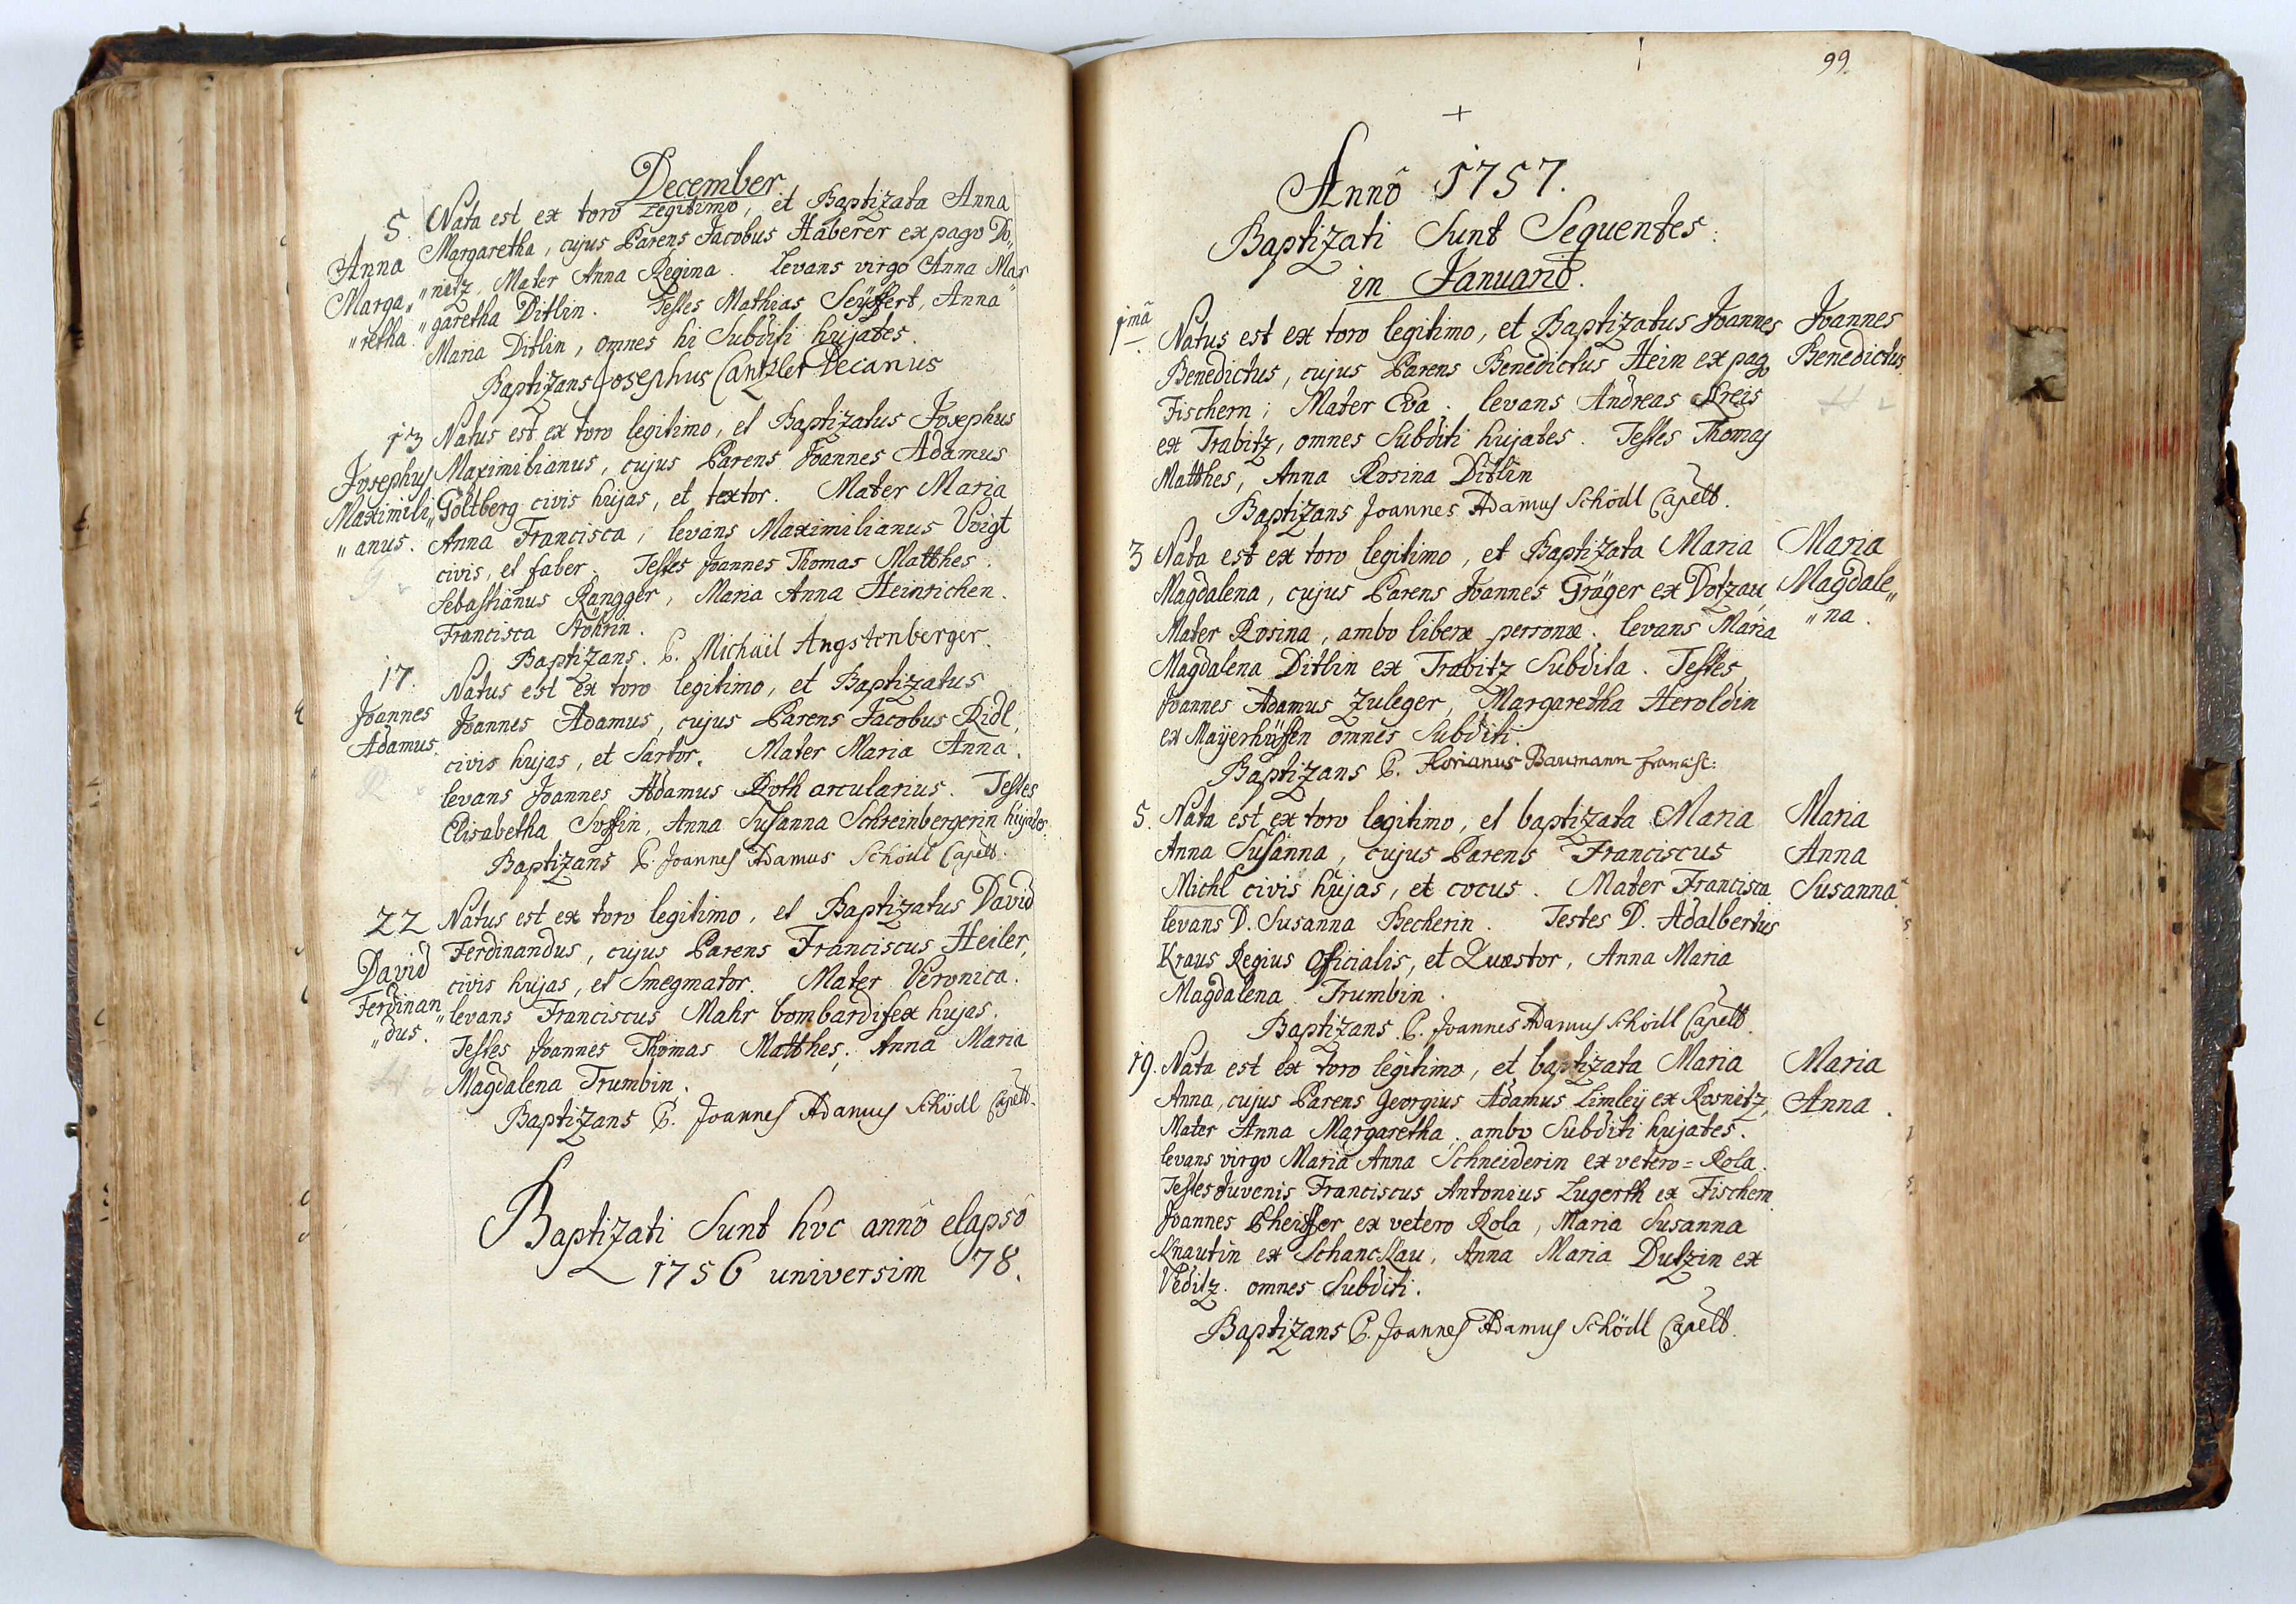 December.
5. Nata est ex toro Legitimo, et Baptizata Anna
Anna Margaretha, cujus Parens Jacobus Häberer ex pago Do„
Marga„ „nitz, Mater Anna Regina. levans virgo Anna Mar„
„retha. „garetha Ditlin. Testes Mathias Seÿffert, Anna
Maria Ditlin, omnes hi Subditi hujates.
Baptizans Josephus Cantzler Decanus
13 Natus est ex toro legitimo, et Baptizatus Josephus
Josephus Maximilianus, cujus Parens Joannes Adamus
Maximili„ Göltberg civis hujas, et textor. Mater Maria
„anus. Anna Francisca, levans Maximilianus Voigt
civis, et faber. Testes Joannes Thomas Matthes.
Sebastianus Rängger, Maria Anna Heinrichen.
Francisca Stöhrin.
Baptizans. P. Michäel Angstenberger.
17. Natus est ex toro legitimo, et Baptizatus
Joannes Joannes Adamus, cujus Parens Jacobus Ridl,
Adamus. civis hujas, et Sartor. Mater Maria Anna.
levans Joannes Adamus Roth arcularius. Testes
Elisabetha Soffin, Anna Susanna Schreinbergerin hujates.
Baptizans P. Joannes Adamus Schödl Capell.
22 Natus est ex toro legitimo, et Baptizatus David
David Ferdinandus, cujus Parens Franciscus Heiler,
Ferdinan„ civis hujas, et Smegmator. Mater Veronica.
„dus. levans Franciscus Mahr bombardifex hujas.
Testes Joannes Thomas Matthes, Anna Maria
Magdalena Trumbin.
Baptizans P. Joannes Adamus Schödl Capell.
Baptizati Sunt hoc annô elapsô
1756 universim 78.
99.
+
Annô 1757.
Baptizati Sunt Sequentes:
in Januariô.
1mâ Natus est ex toro legitimo, et Baptizatus Joannes Joannes
Benedictus, cujus Parens Benedictus Hein ex pago Benedictus
Fischern; Mater Eva. levans Andreas Kreis
ex Trabitz, omnes Subditi hujates. Testes Thomas
Matthes, Anna Rosina Ditlin
Baptizans Joannes Adamus Schödl Capell.
3 Nata est ex toro legitimo, et Baptizata Maria Maria
Magdalena, cujus Parens Joannes Träger ex Dotzau, Magdale„
Mater Rosina, ambo liberæ personæ. levans Maria „na.
Magdalena Ditlin ex Trabitz Subdita. Testes
Joannes Adamus Zuleger, Margaretha Heroldin
ex Maÿerhöffen omnes Subditi.
Baptizans P. Florianus Baumann Francisc:
5. Nata est ex toro legitimo, et baptizata Maria Maria
Anna Susanna, cujus Parens Franciscus Anna
Michl civis hujas, et cocus. Mater Francisca Susanna.
levans D. Susanna Becherin. Testes D. Adalbertus
Kraus Regius Officialis, et Quæstor, Anna Maria
Magdalena Trumbin.
Baptizans P. Joannes Adamus Schödl Capell.
19. Nata est ex toro legitimo, et baptizata Maria Maria
Anna, cujus Parens Georgius Adamus Limleÿ ex Rosnitz, Anna.
Mater Anna Margaretha, ambo Subditi hujates.
levans virgo Maria Anna Schneiderin ex vetero=Rola.
Testes Juvenis Franciscus Antonius Lugerth ex Fischern.
Joannes Pheiffer ex vetero Rola, Maria Susanna
Knautin ex Schancklau, Anna Maria Dutzin ex
Veditz. omnes Subditi.
Baptizans P. Joannes Adamus Schödl Capell.